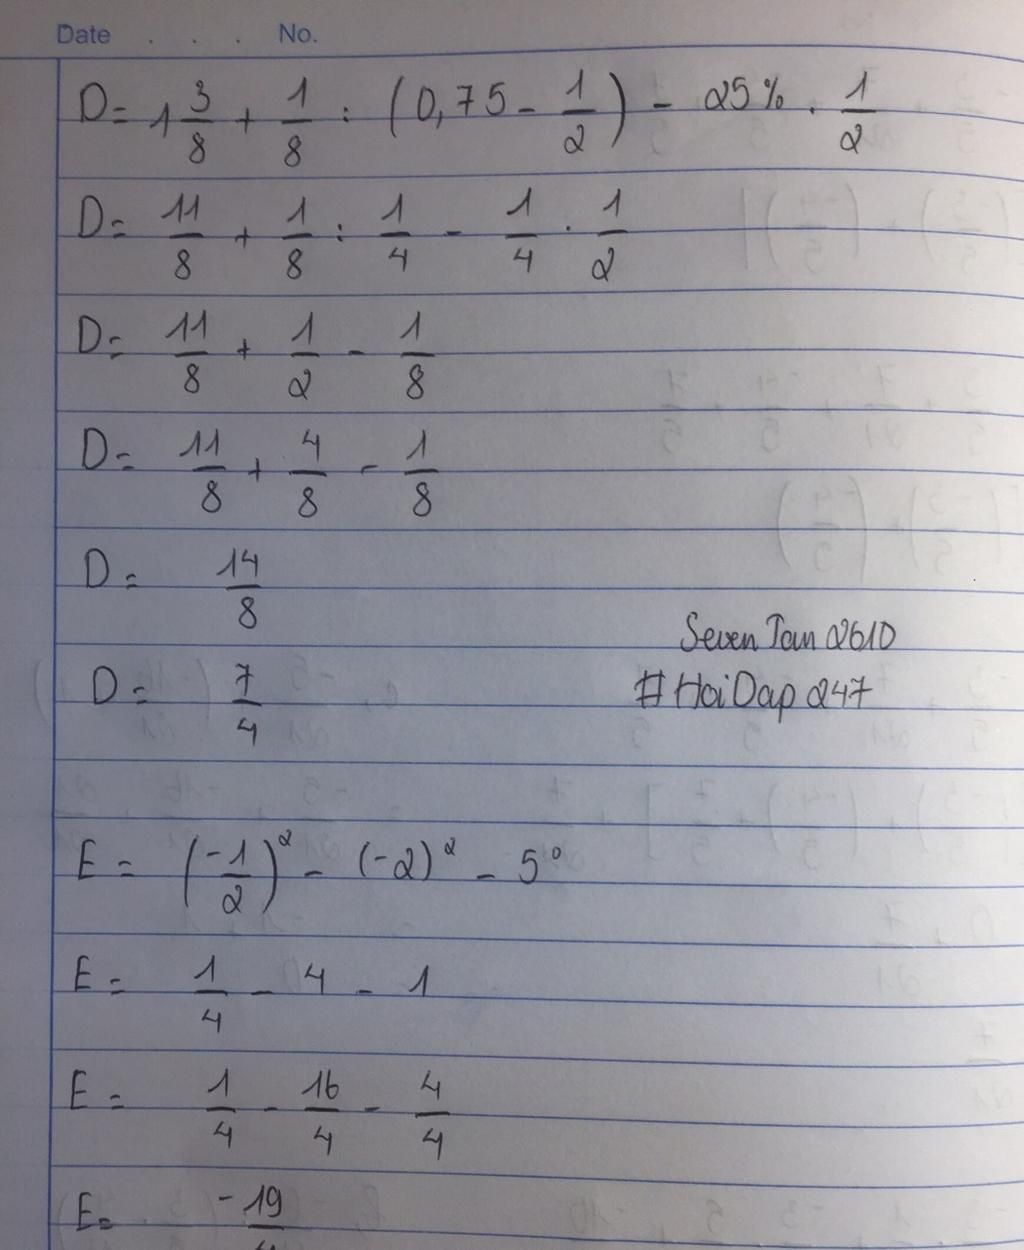 Date . . . No.
D = 1 3/8 + 1/8 : (0,75 - 1/2) - 25% . 1/2
D = 11/8 + 1/8 : 1/4 - 1/4 . 1/2
D = 11/8 + 1/2 - 1/8
D = 11/8 + 4/8 - 1/8
D = 14/8
Seven Tan 2610
D = 7/4
#HoiDap247
E = (-1/2)² - (-2)² - 5⁰
E = 1/4 - 4 - 1
E = 1/4 - 16/4 - 4/4
E = -19/4